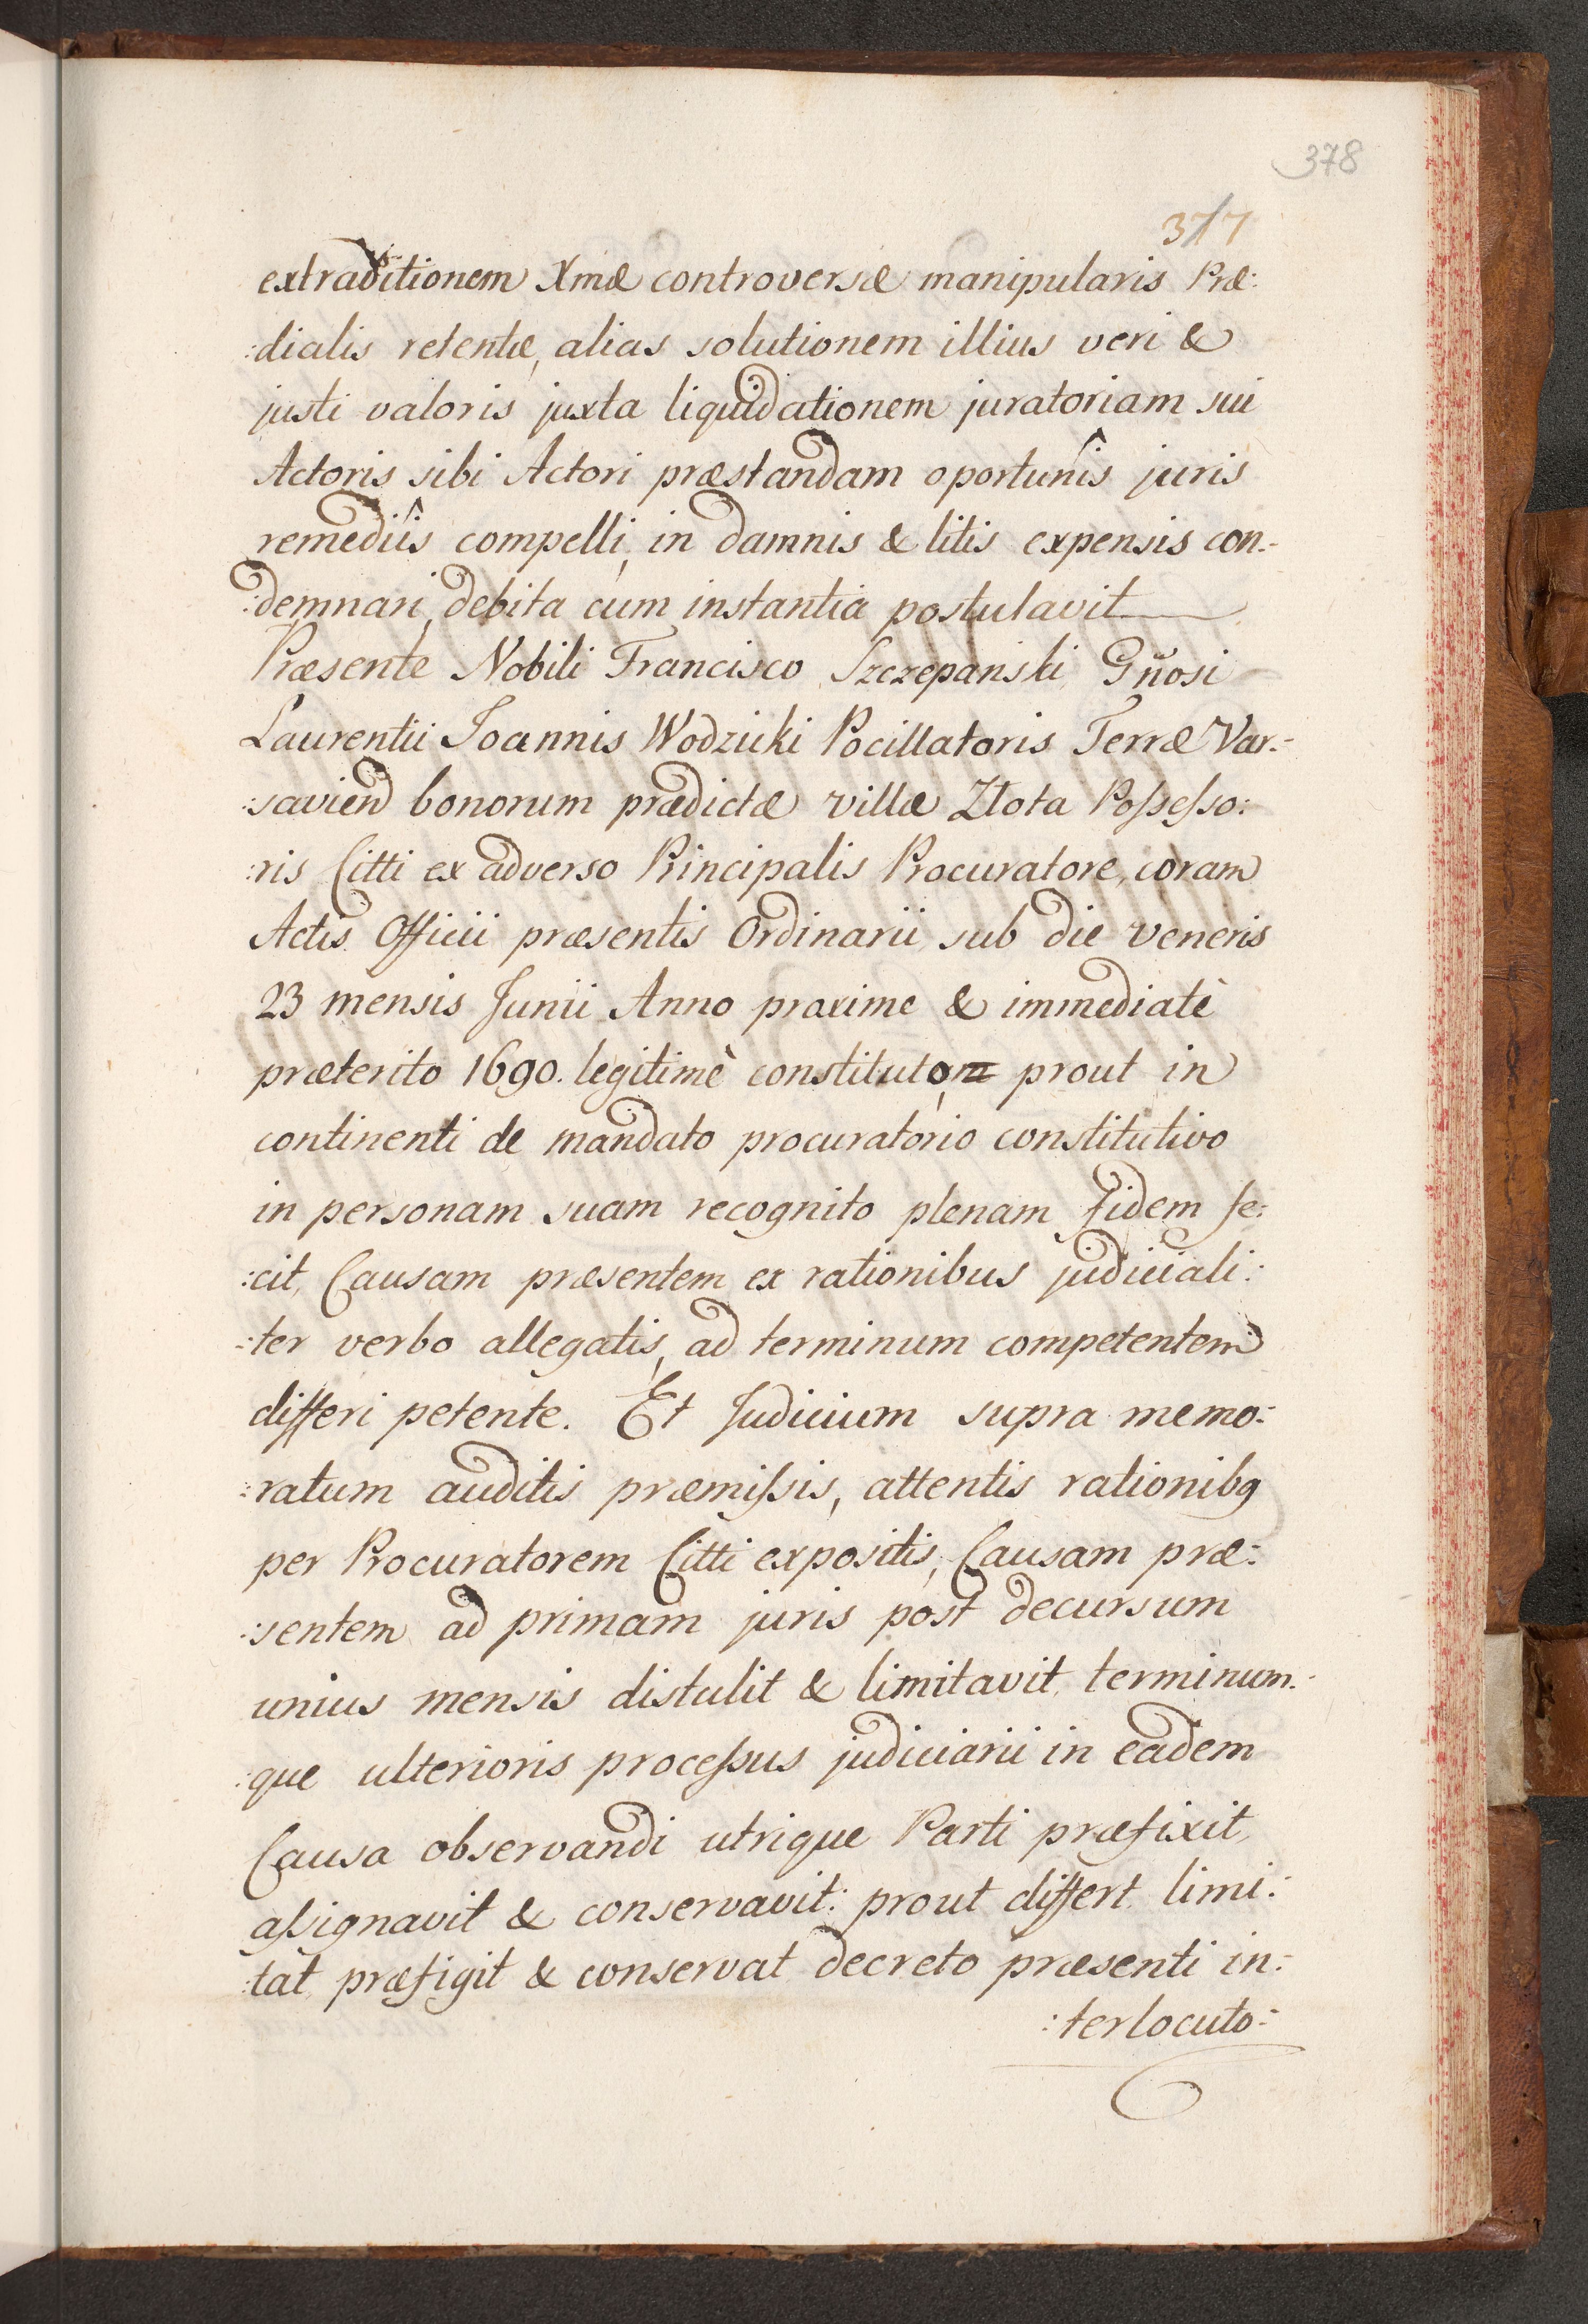 378
377
extraditionem Xmæ controversæ manipularis Præ:
:dialis retentæ, alias solutionem illius veri &
justi valoris juxta liquidationem juratoriam sui
Actoris sibi Actori præstandam oportunîs juris
remediîs compelli, in damnis & litis expensis con:
:demnari, debita cum instantia postulavit
Præsente Nobili Francisco Szczepanski Gñosi
Laurentii Joannis Wodzicki Pocillatoris Terræ Var:
:savien bonorum prædictæ villæ Zlota Poſseſso:
:ris Citti ex adverso Principalis Procuratore, coram
Actis Officii præsentis Ordinarii sub die veneris
23 mensis Junii Anno proxime & immediatè
præterito 1690. legitimè constituto, prout in
continenti de mandato procuratorio constitutivo
in personam suam recognito plenam fidem fe:
:cit, Causam præsentem ex rationibus judiciali:
:ter verbo allegatis, ad terminum competentem
differi petente. Et Judicium supra memo:
:ratum auditis præmiſsis, attentis rationibq
per Procuratorem Citti expositis, Causam præ:
:sentem ad primam juris post decursum
unius mensis distulit & limitavit, terminum:
:que ulterioris proceſsus judiciarii in eadem
Causa observandi utrique Parti præfixit,
aſsignavit & conservavit: prout differt, limi:
:tat, præfigit & conservat decreto præsenti in:
:terlocuto: